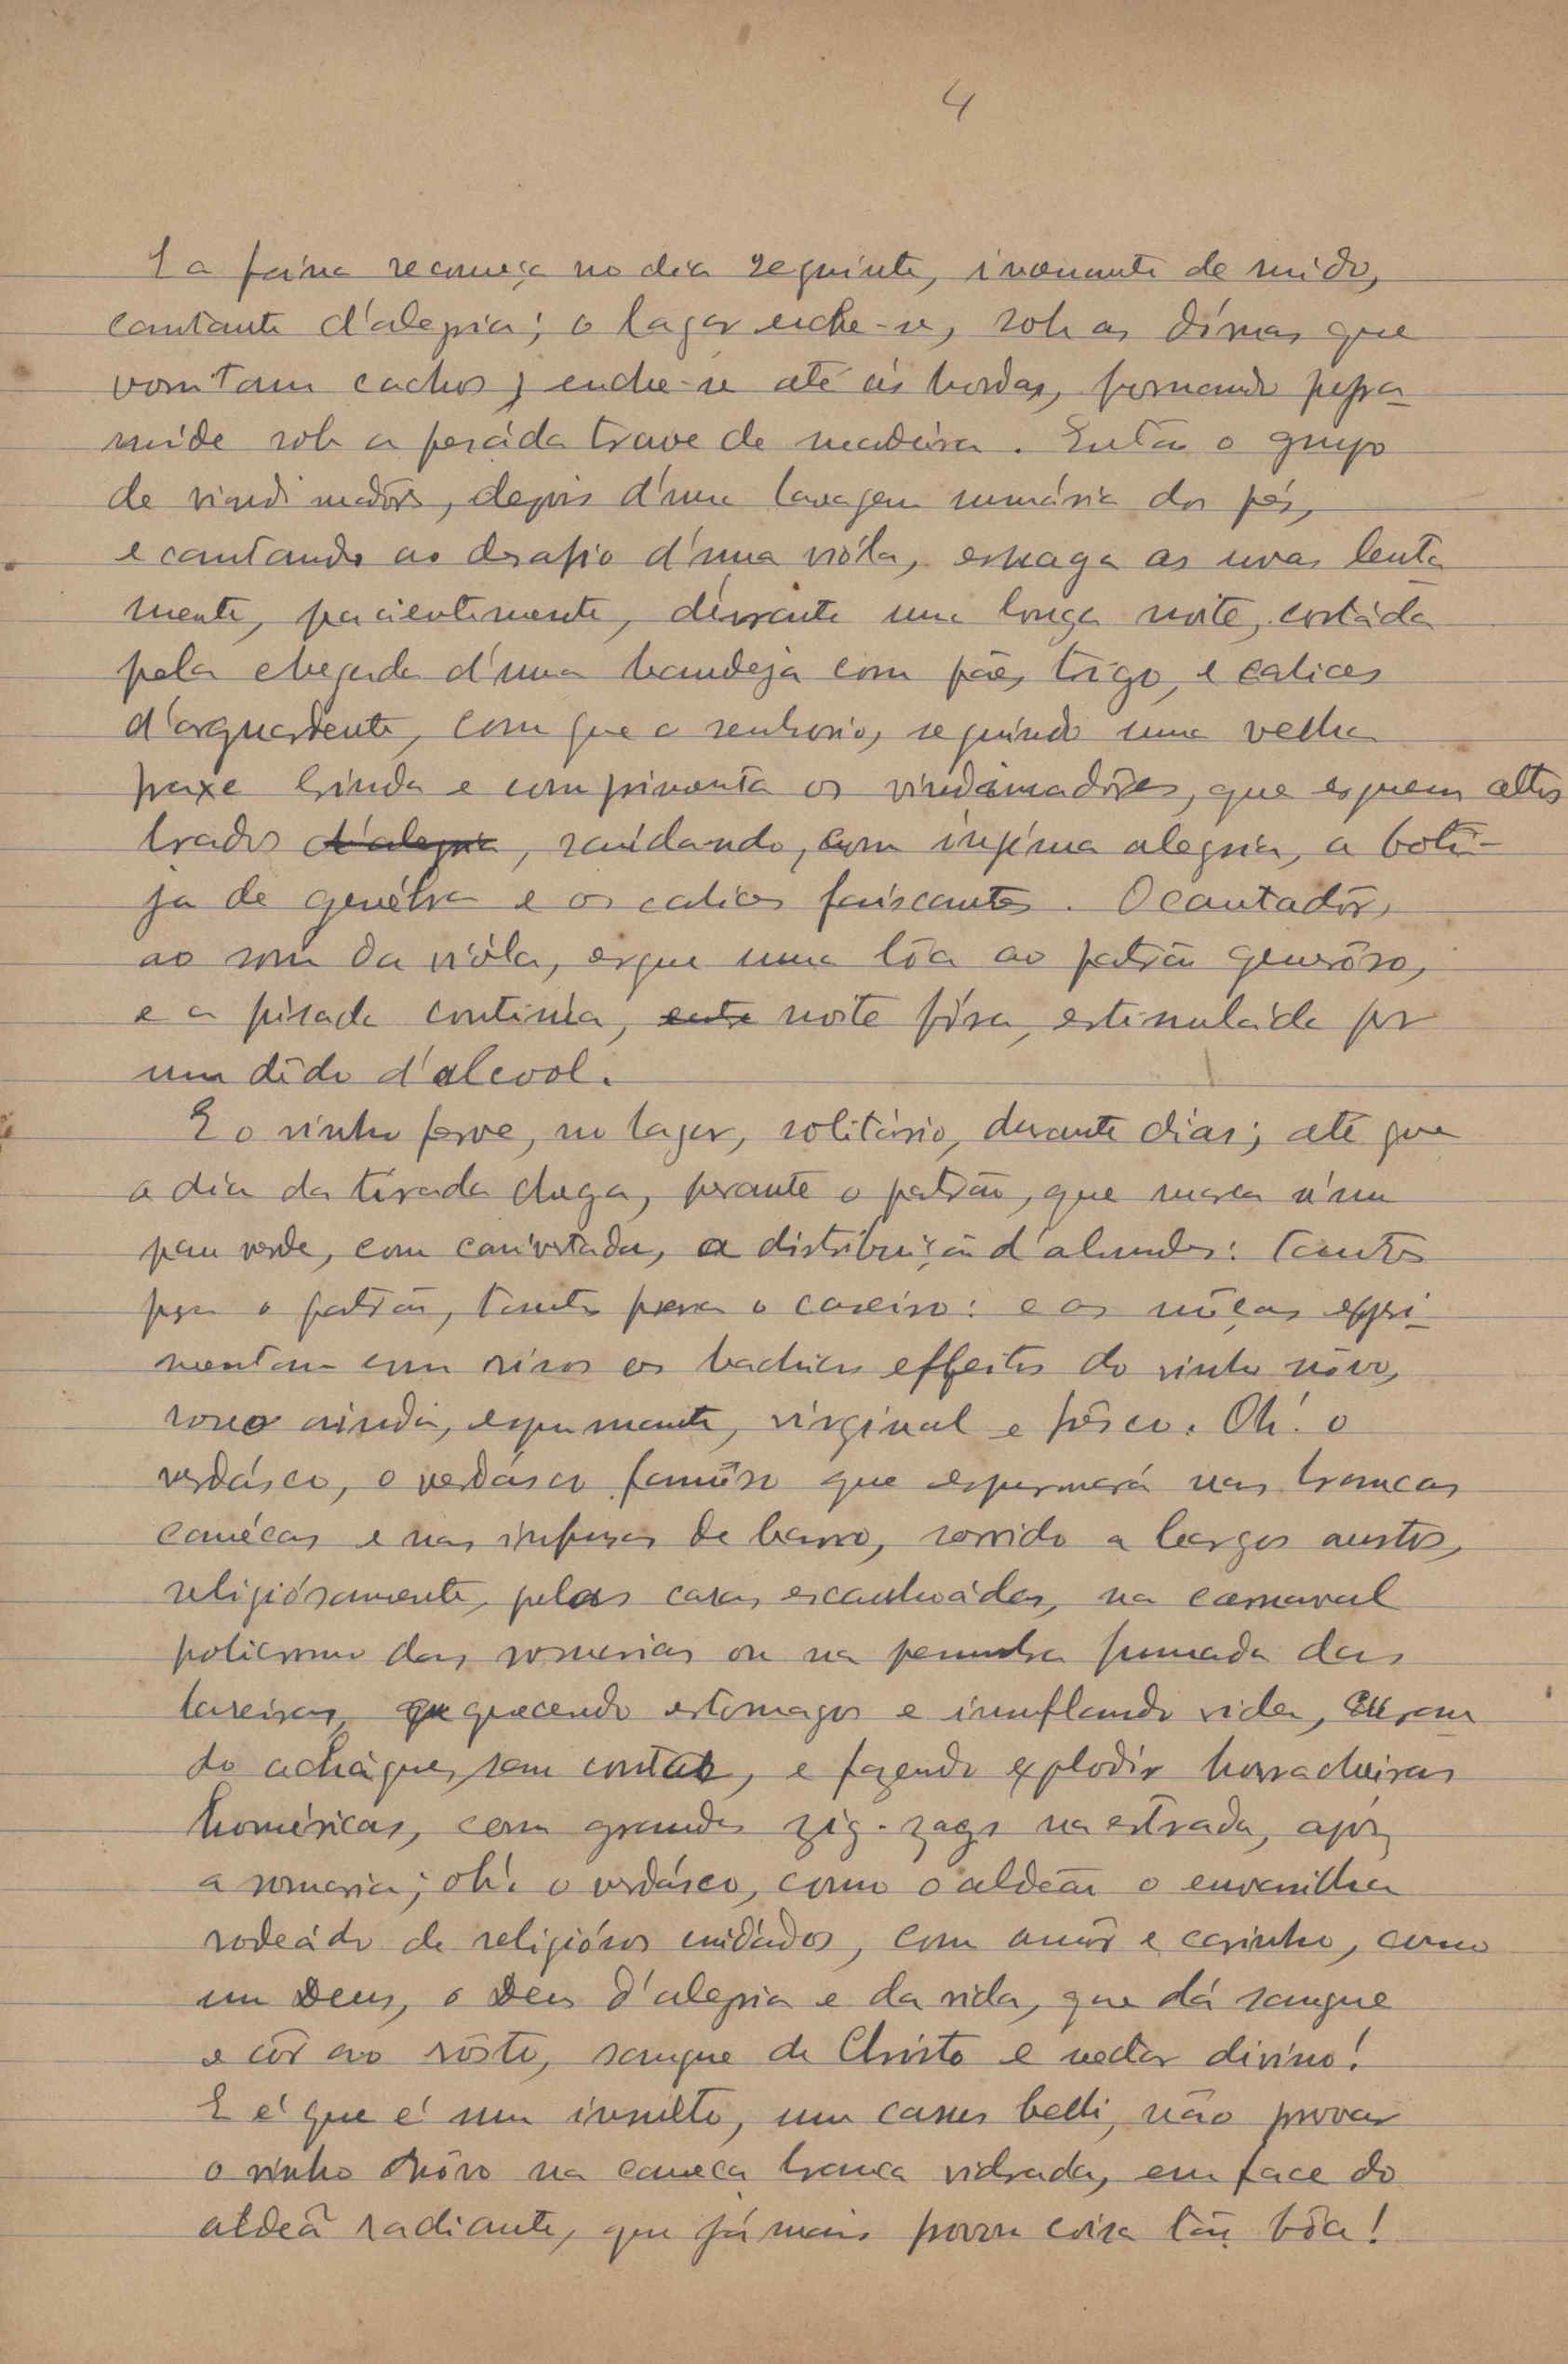 4
E a faina recomeça no dia seguinte, insonante de ruido,
cantante d'alegria; o lagar enche-se, sob as dórnas que
vomitam cachos; enche-se até ás bordas, formando
sob a pesáda trave de madeira. Então o grupo
de vindimadôres, depois d'uma lavagem sumária dos pés,
e cantando ao desafio d'uma vióla, esmaga as uvas lenta
mente, pacientemente, durante uma longa noite, cortáda
pela chegada d'uma bandeja com pão, trigo, e calices
d'arguardente, com que o senhorio, seguindo uma velha
praxe brinda e comprimenta os vindimadôres, que erguem altos
brados d'alegria, saudando, com infinda alegria, a boti-
ja de genébra e os calices faiscantes. O cantadôr,
ao som da vióla, ergue uma lôa ao patrão generôso,
e a pisada continúa, noite fóra, estimuláda por
um dêdo d'alcool.
E o vinho ferve, no lagar, solitário, durante dias; até que
o dia da tirada chega, perante o patrão, que marca n'um
pau verde, com canivetada, a distribuição d'almudes: tantos
pra o patrão, tantos para o caseiro: e as môças expri-
mentam com risos os bachicos effeitos do vinho nôvo,
ainda, espumante, virginal e frêsco. Oh! o
verdásco, o verdásco famôso que espumará nas brancas
canécas e nas infusas de barro, sorvido a largos austos,
religiósamente, pelas caras escanhoádas, na carnaval
policromo das romarias ou na penumbra fumada das
lareiras, aquecendo estomagos e insuflando vida, curan
do achaques sem conta, e fazendo explodir borracheiras
homéricas, com grandes zig-zags na estrada, após
a romaria; oh! o verdásco, como o aldeão o envasilha
rodeádo de religiósos cuidádos, com amôr e carinho, como
um Deus, o Deus d'alegria e da vida, que dá sangue
e côr ao rôsto, sangue de Christo e nectar divino!
E é que é um insulto, um casus belli, não provar
o vinho nôvo na caneca branca vidrada, em face do
aldeã radiante, que jámais provou coisa tão bôa!